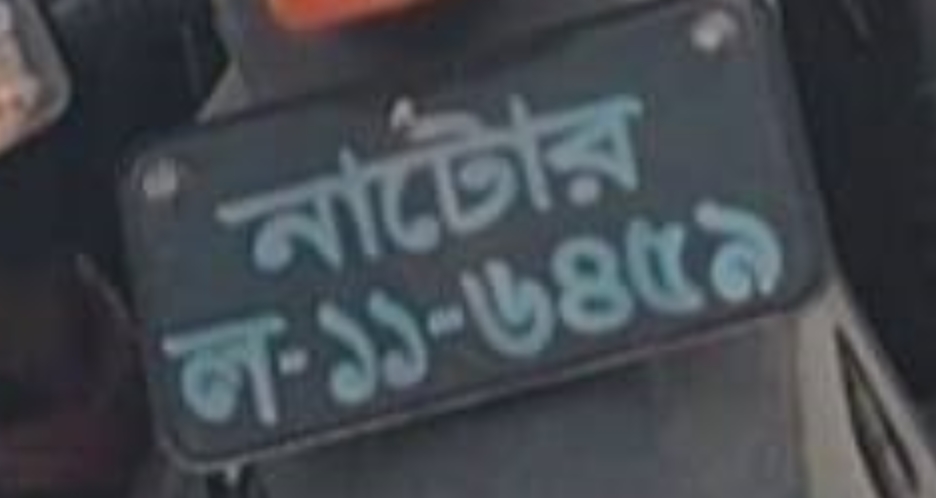 নাটোর
ল-১১-৬৪৫৯